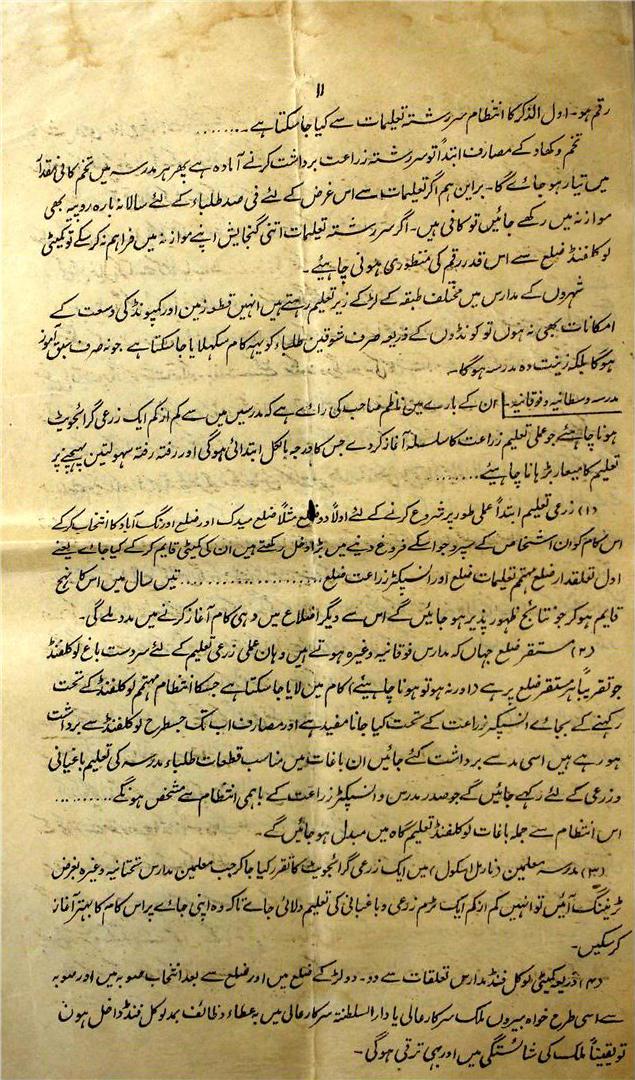 ۱۱
رقم ہو۔ اول الذکر کا انتظام سررشتہ تعلیمات سے کیا جا سکتا ہے۔.......
تخم و کھاد کے مصارف ابتداً تو سررشتہ زراعت برداشت کرنے آمادہ ہے پھر ہر مدرسہ میں تخم کافی مقدار
میں تیار ہو جائے گا۔ براین ہم اگر تعلیمات اسے اس غرض کے لئے فی صد طلباء کے لئے سالانہ بارہ روپیہ بھی
موازنہ میں رکھے جائیں تو کافی ہیں۔ اگر سررشتہ تعلیمات اتنی گنجایش اپنے موازنہ میں فراہم نہ کر سکے تو کمیٹی
لوکلفنڈ ضلع سے اس قدر رقم کی منظوری ہونی چاہیئے۔
شہروں کے مدارس میں مختلف طبقہ کے لڑکے زیر تعلیم رہتے ہیں انہیں قطعہ زمین اور کمپونڈ کی وسعت کے
امکانات بھی نہ ہوں تو کونڈوں کے ذریعہ صرف شوقین طلباء کو یہہ کام سکہلایا جا سکتا ہے۔ جو نہ صرف سبق آموز
ہوگا بلکہ زینت دہ مدرسہ ہوگا۔
مدرسہ وسطانیہ و فوقانیہ۔ ان کے بارے مین ناظم صاحب کی رائے ہے کہ مدرسین میں سے کم از کم ایک زرعی گرائجویٹ
ہونا چاہیئے جو عملی تعلیم زراعت کا سلسلہ آغاز کر دے جس کا درجہ بالکل ابتدائی ہوگی اور رفتہ رفتہ سہولتین پہچنے پر
تعلیم کا معیار بڑہانا چاہیئے........
(۱) زرعی تعلیم ابتداً عملی طور پر شروع کرنے کے لئے اولاً دو ضلع مثلاً ضلع میدک اور ضلع اورنگ آباد کا انتخاب کر کے
اس کام کو ان اشخاص کے سپرد جو اسکے فروغ دینے میں بڑا دخل رکھتے ہیں ان کی کمیٹی قایم کر کے کیا جائے یعنے
اول تعلقدار ضلع مہتمم تعلیمات ضلع اور انسپکٹر زراعت ضلع................ تیں سال میں اس کا نہج
قایم ہو کر جو نتائج ظہور پذیر ہو جائیں گے اس سے دیگر اضلاع میں وہی کام آغاز کرنے میں مدد ملے گی۔
(۲) مستقر ضلع جہاں کہ مدارس فوقانیہ وغیرہ ہوتے ہیں وہان عملی زرعی تعلیم کے لئے سردست باغ لوکلفنڈ
جو تقریباً ہر مستقر ضلع پر ہے (اور نہ ہو تو ہونا چاہیئے) کام میں لایا جا سکتا ہے جسکا انتظام مہتمم لوکلفنڈ کے تحت
رکہنے کے بجائے انسپکٹر زراعت کے تحت کیا جانا مفید ہے اور مصارف اب تک جسطرح لوکلفنڈ سے برداشت
ہو رہے ہیں اسی مد سے برداشت کئے جائیں ان باغات میں مناسب قطعات طلباء مدرسہ کی تعلیم باغبانی
و زرعی کے لئے رکہے جائیں گے جو صدر مدرس و انسپکٹر زراعت کے باہمی انتظام سے مشخص ہونگے..........
اس انتظام سے جملہ باغات لوکلفنڈ تعلیم گاہ میں مبدل ہو جائیں گے۔
(۳) مدرسہ معلمین (نارمل اسکول) میں ایک زرعی گرائجویٹ کا تقرر کیا جا کر جب معلمین مدارس تحتانیہ وغیرہ بغرض
ٹریننگ آئیں تو انہیں کم از کم ایک ٹرم زرعی و باغبانی کی تعلیم دلائی جاے تاکہ وہ اپنی جائے پر اس کام کا بہتر آغاز
کر سکیں۔
(۴) ذریعہ کمیٹی لوکل فنڈ مدارس تعلقات سے دو۔ دو لڑکے ضلع میں اور ضلع سے بعد انتخاب صوبہ میں اور صوبہ
سے اسی طرح خواہ بیروں ملک سرکار عالی یا دار السلطنۃ سرکار عالی میں بہ عطاء وظائف بمد لوکل فنڈ داخل ہون
تو یقیناً ملک کی شائستگی میں اور بہی ترقی ہوگی۔